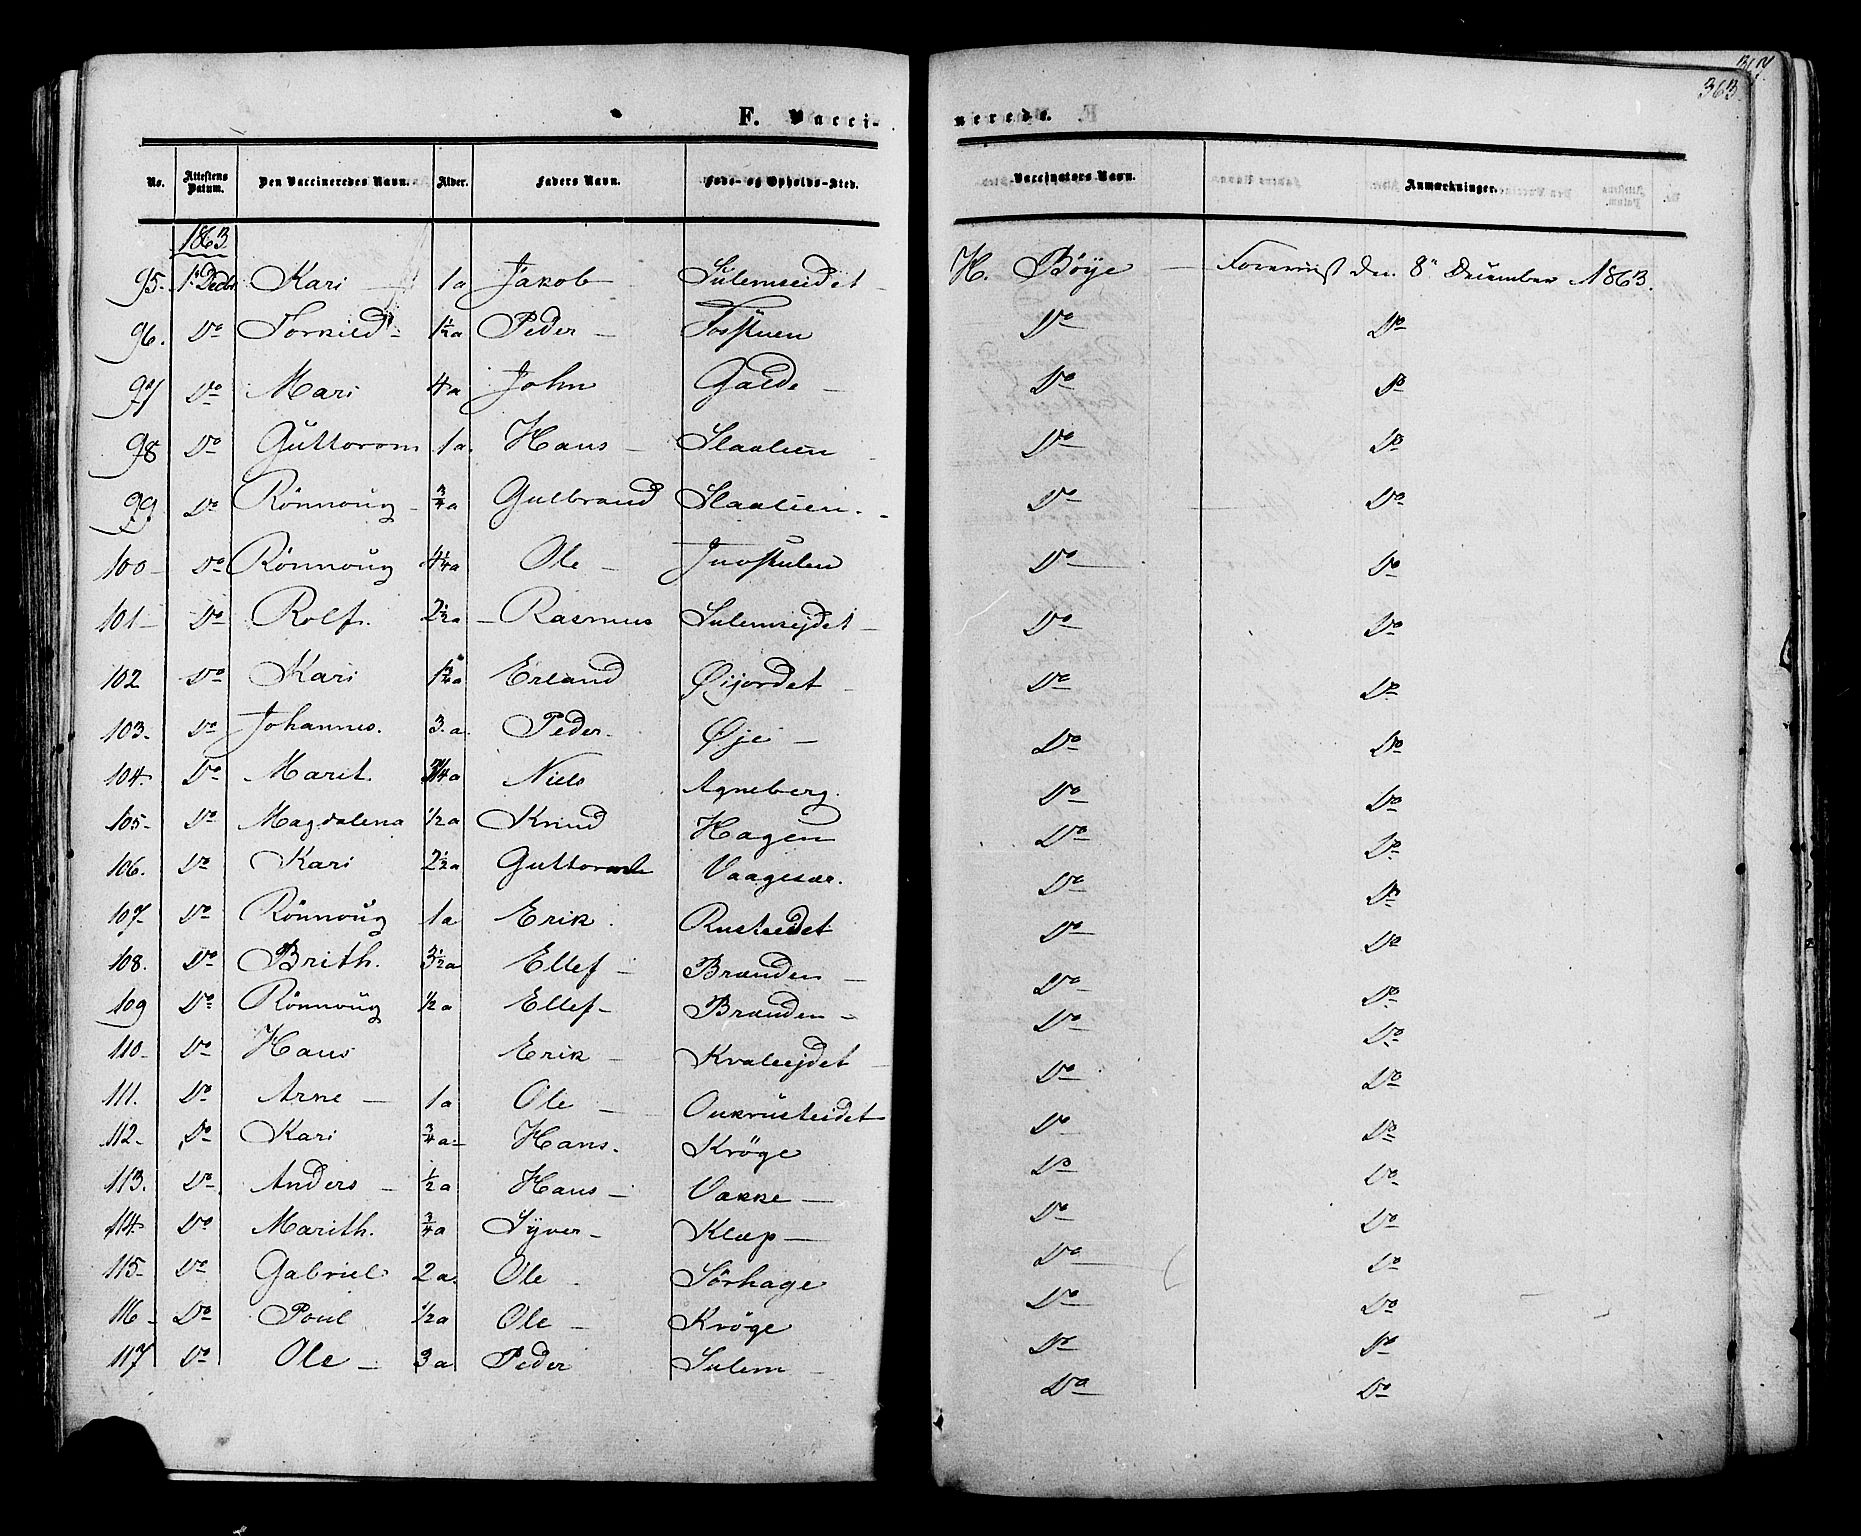 363.
F. Vacci-
nerede.
No. Attestens Datum. Den Vaccineredes Navn. Alder. Faders Navn. Føde- og Opholds-Sted. Vaccinators Navn. Anmærkninger.
1863
95. 1. Decbr. Kari 1a Jakob Sulemseidet H. Böye Foreviist den 8. December 1863.
96. Do Torkild 1½a Peder Do Do
97 Do Mari 4a John Galde Do Do
98 Do Guttorom 1a Hans Slaalien Do Do
99 Do Rönnoug ¾a Gulbrand Slaalien Do Do
100 Do Rönnoug 4¼a Ole Do Do
101 Do Rolf. 2½a Rasmus Sulemsejdet Do Do
102 Do Kari 1¾a Erland Øijordet Do Do
103. Do Johannes. 3.a. Peder. Øje Do Do
104. Do Marit. Niels Agneberg. Do Do
105. Do Magdalena ½a Knud Hagen Do Do
106. Do Kari 2½a Guttorm Vaagesær. Do Do
107. Do Rönnoug 1a Erik. Rusteidet Do Do
108. Do Brith. 3½a Ellef Brænden Do Do
109 Do Rönnoug ½a Ellef Brænden Do Do
110. Do Hans Erik Kvalejdet Do Do
111. Do Arne 1a Ole Do Do
112. Do Kari ¾a Hans. Kröge Do Do
113. Do Anders ½a Hans Vakke Do Do
114. Do Marith. ¾a Syver Klæp Do Do
115. Do Gabriel 2a. Ole Sörhage Do Do
116 Do Poul ½a Ole Kröge Do Do
117 Do Ole 3a Peder Sulem Do Do